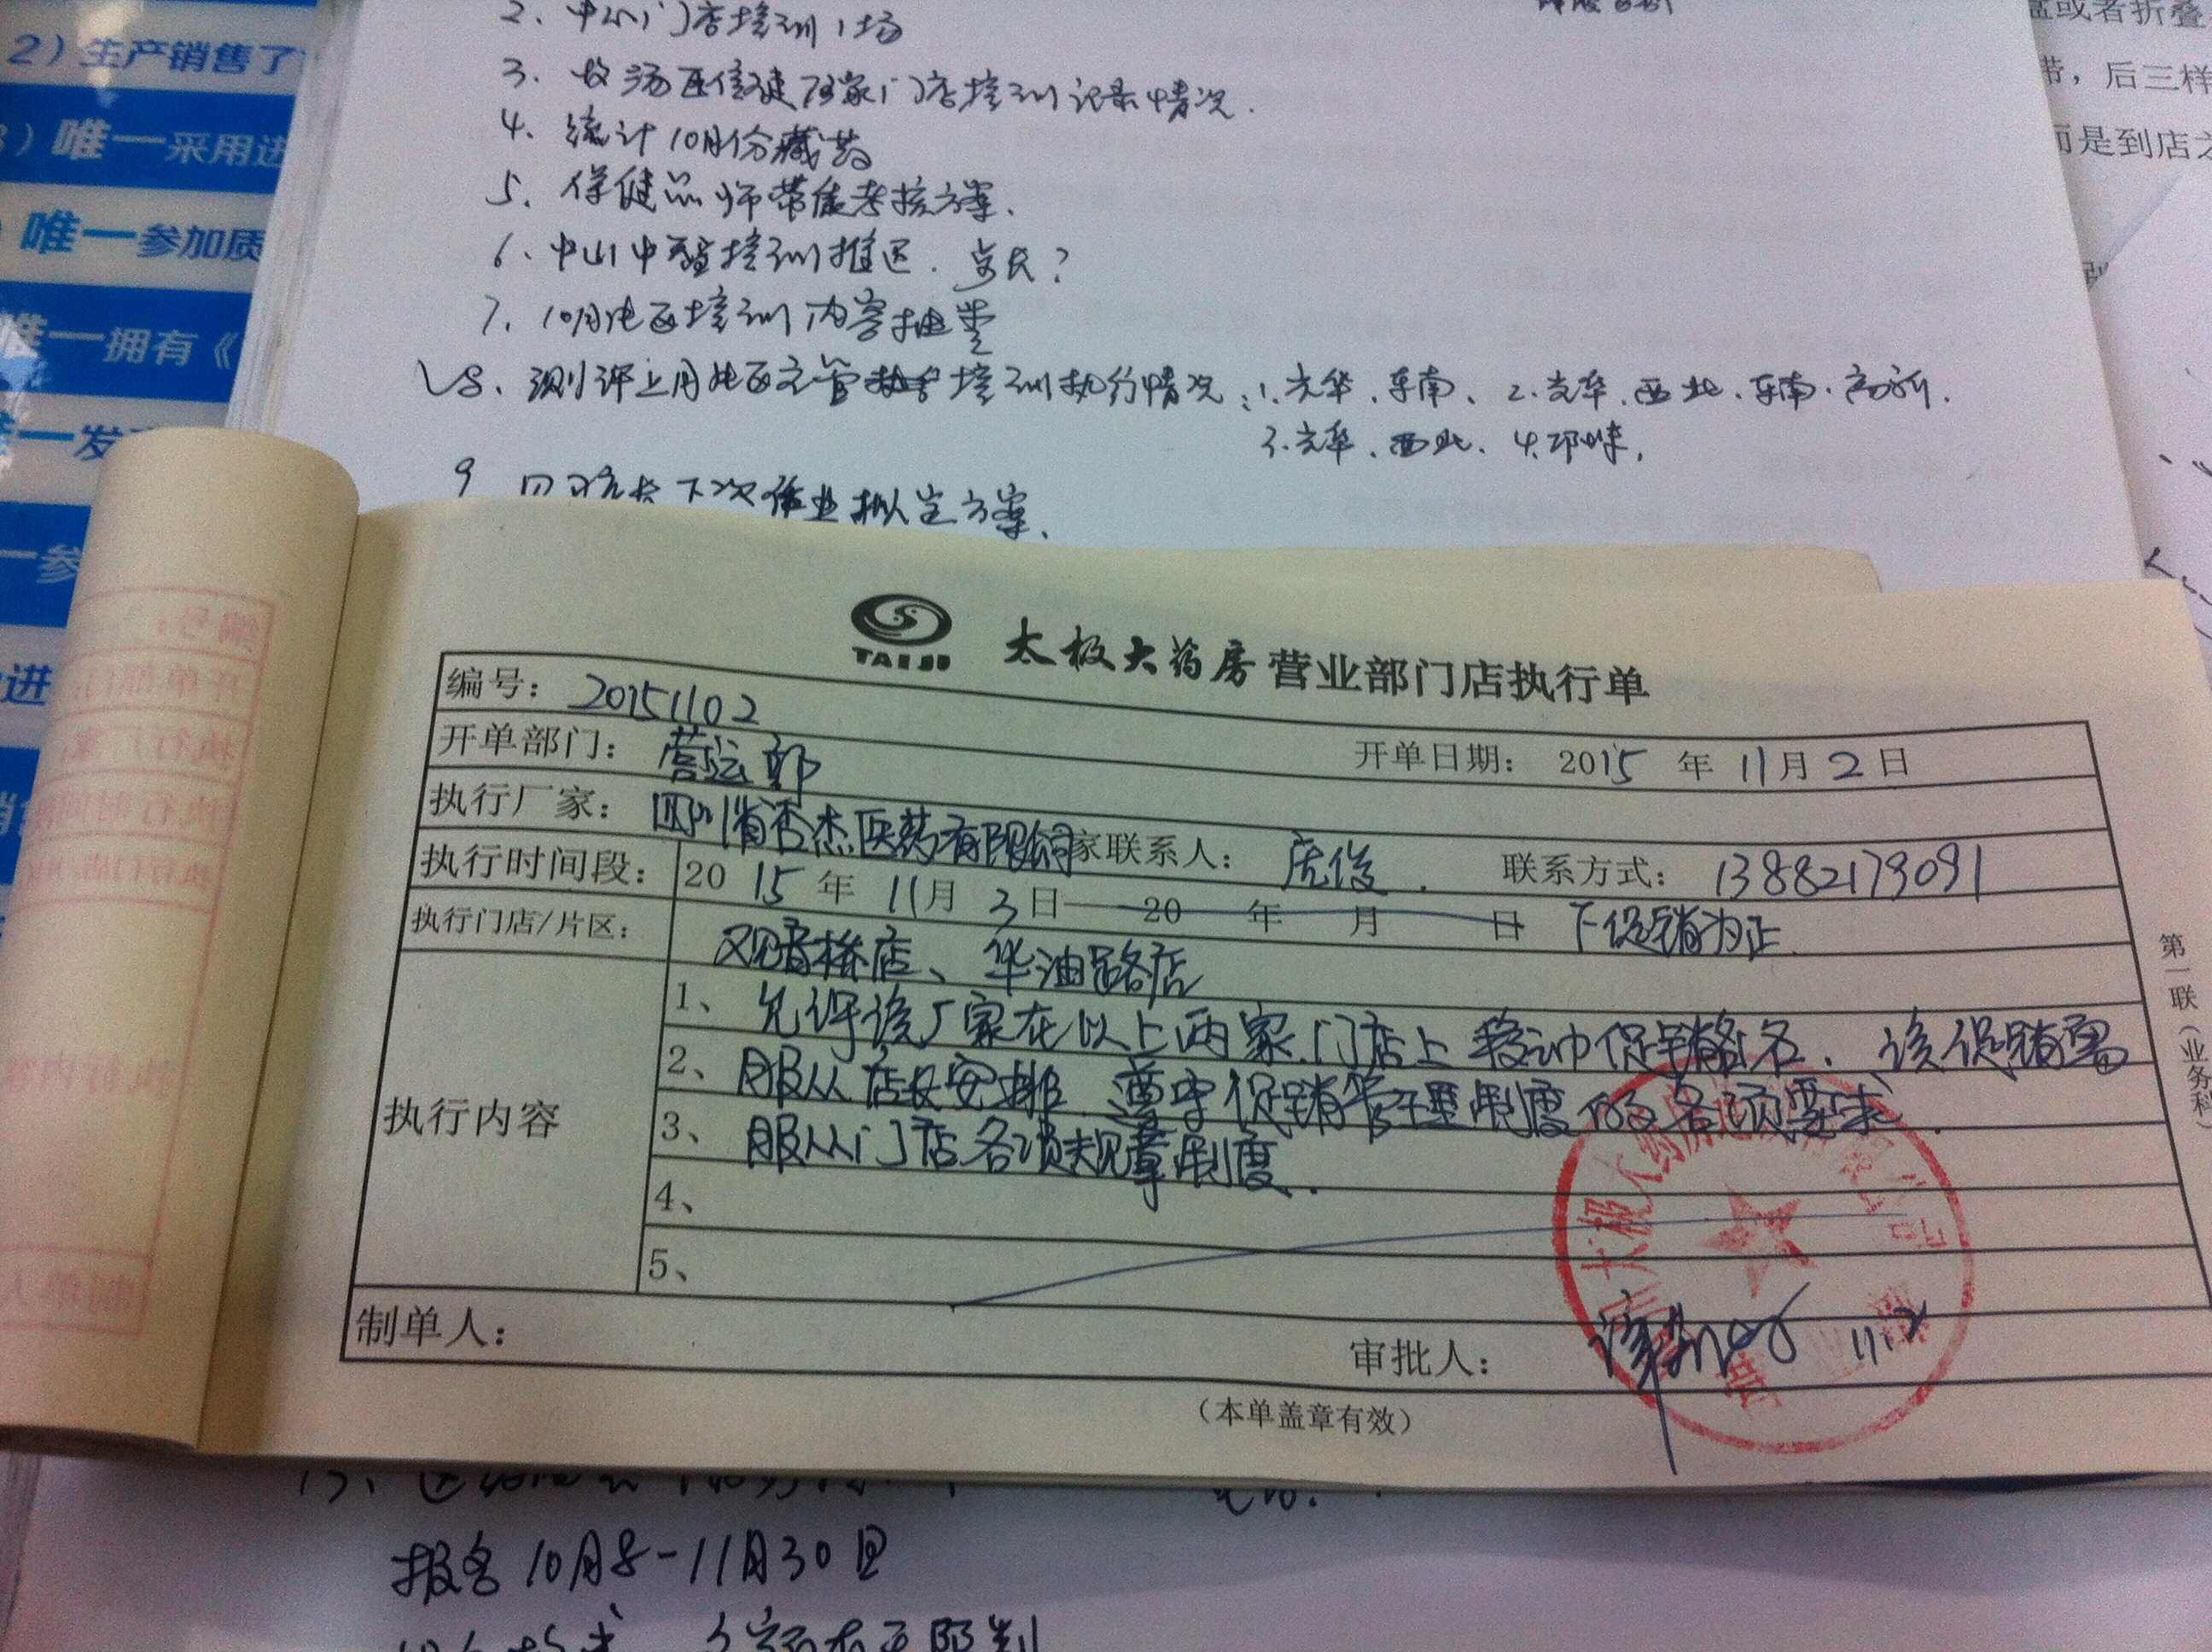 2、中心门店培训1场
4、统计10月份藏药
5、保健品师带徒考核方案、
6、中山中智培训推迟.
7、10月片区培训内容抽查
8、测评上月片区主管培训执行情况:1.光华、东南、2.光华、西北、东南、高新.
3.光华、西北、4.邛崃,
9 下次作业拟定方案、
2）生产销售了
唯一采用进
唯一参加质
唯一拥有《
一发
一参
进
盒或者折叠
带，后三样
而是到店之
TAIJI 太极大药房营业部门店执行单
编号：20151102
开单部门：营运部 开单日期：2015年11月2日
执行厂家：四川省杏杰医药有限公司 家联系人： 联系方式：13882179091
执行时间段：2015年11月3日—20 年 月 日 下促销为止.
执行门店/片区：观音桥店、华油路店
执行内容
1、允许该厂家在以上两家门店上 促销 名、该促销需
2、服从店长安排.遵守促销管理制度的各项要求.
3、服从门店各项规章制度.
4、
5、
制单人： 审批人： 11.2
（本单盖章有效）
第一联（业务科）
报名10月8-11月30日